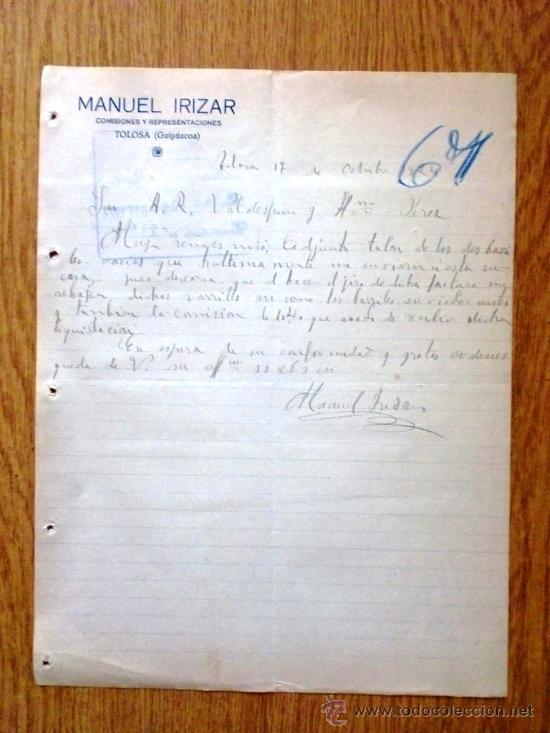 MANUEL IRIZAR
COMISIONES Y REPRESENTACIONES
TOLOSA (Guipúzcoa)
Tolosa 17 de Octubre
Sres A. R. Valdespino y Hno Jerez
Muy Sres mio; Adjunto talon de los dos barri
les vacios que ultimamente me enviaron a esta su
casa, pues desearia que al hacer el giro de dicha factura me
rebajen dichos barriles asi como los barriles enviados
y tambien la comision de que acabo de recibir dicha
liquidacion
En espera de su conformidad y gratas ordenes
queda de V. su affmo
Manuel Irizar
www.todocoleccion.net